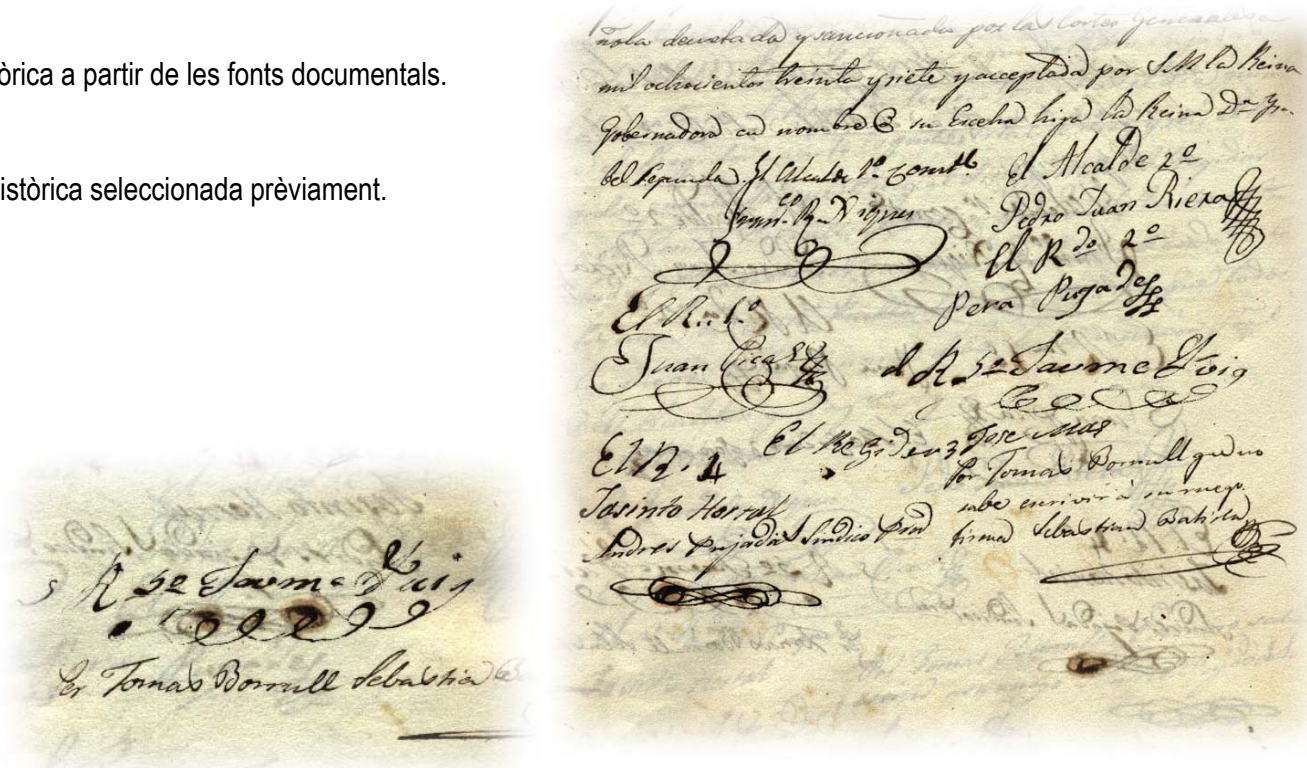 òrica a partir de les fonts documentals.
istòrica seleccionada prèviament.
ñola decretada y sancionada por las Cortes Generales
mil ochocientos treinta y siete y acceptada por S.M. la Reina
Gobernadora en nombre de su Excelsa hija la Reina Dª Ysa-
bel Segunda. El Alcalde 1º Const.l
El Alcalde 2º
Pedro Juan Riera
El R.do 2º
Pera Pujades
El R. 1.º
Juan
el R 5º Jaume Puig
El R. 4
El Regidor 3 Jose Mas
Jasinto Horral
Por Tomas Borrull que no
sabe escrivir à su ruego
firma Sebastian Batista
Andres Pujadas Sindico Pror
R 5º Jaume Puig
Per Tomas Borrull Sebastia